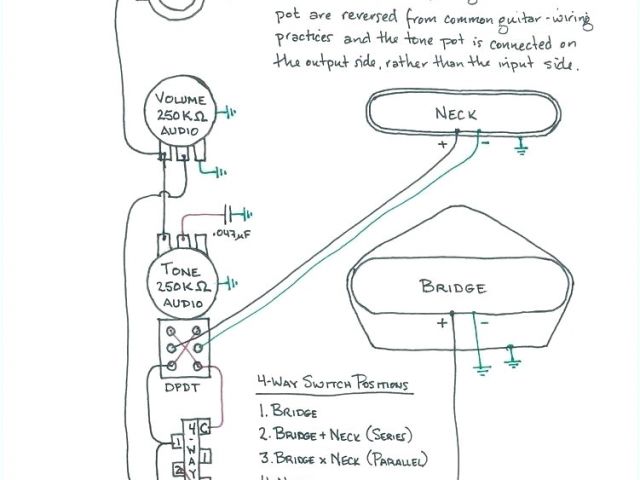 pot are reversed from common guitar-wiring
practices and the tone pot is connected on
the output side, rather than the input side.
VOLUME
250KΩ
AUDIO
NECK
+
-
.047µF
TONE
250KΩ
AUDIO
BRIDGE
+
-
DPDT
4-WAY SWITCH POSITIONS
1. BRIDGE
2. BRIDGE + NECK (SERIES)
3. BRIDGE x NECK (PARALLEL)
4-WAY
C
1
1
2